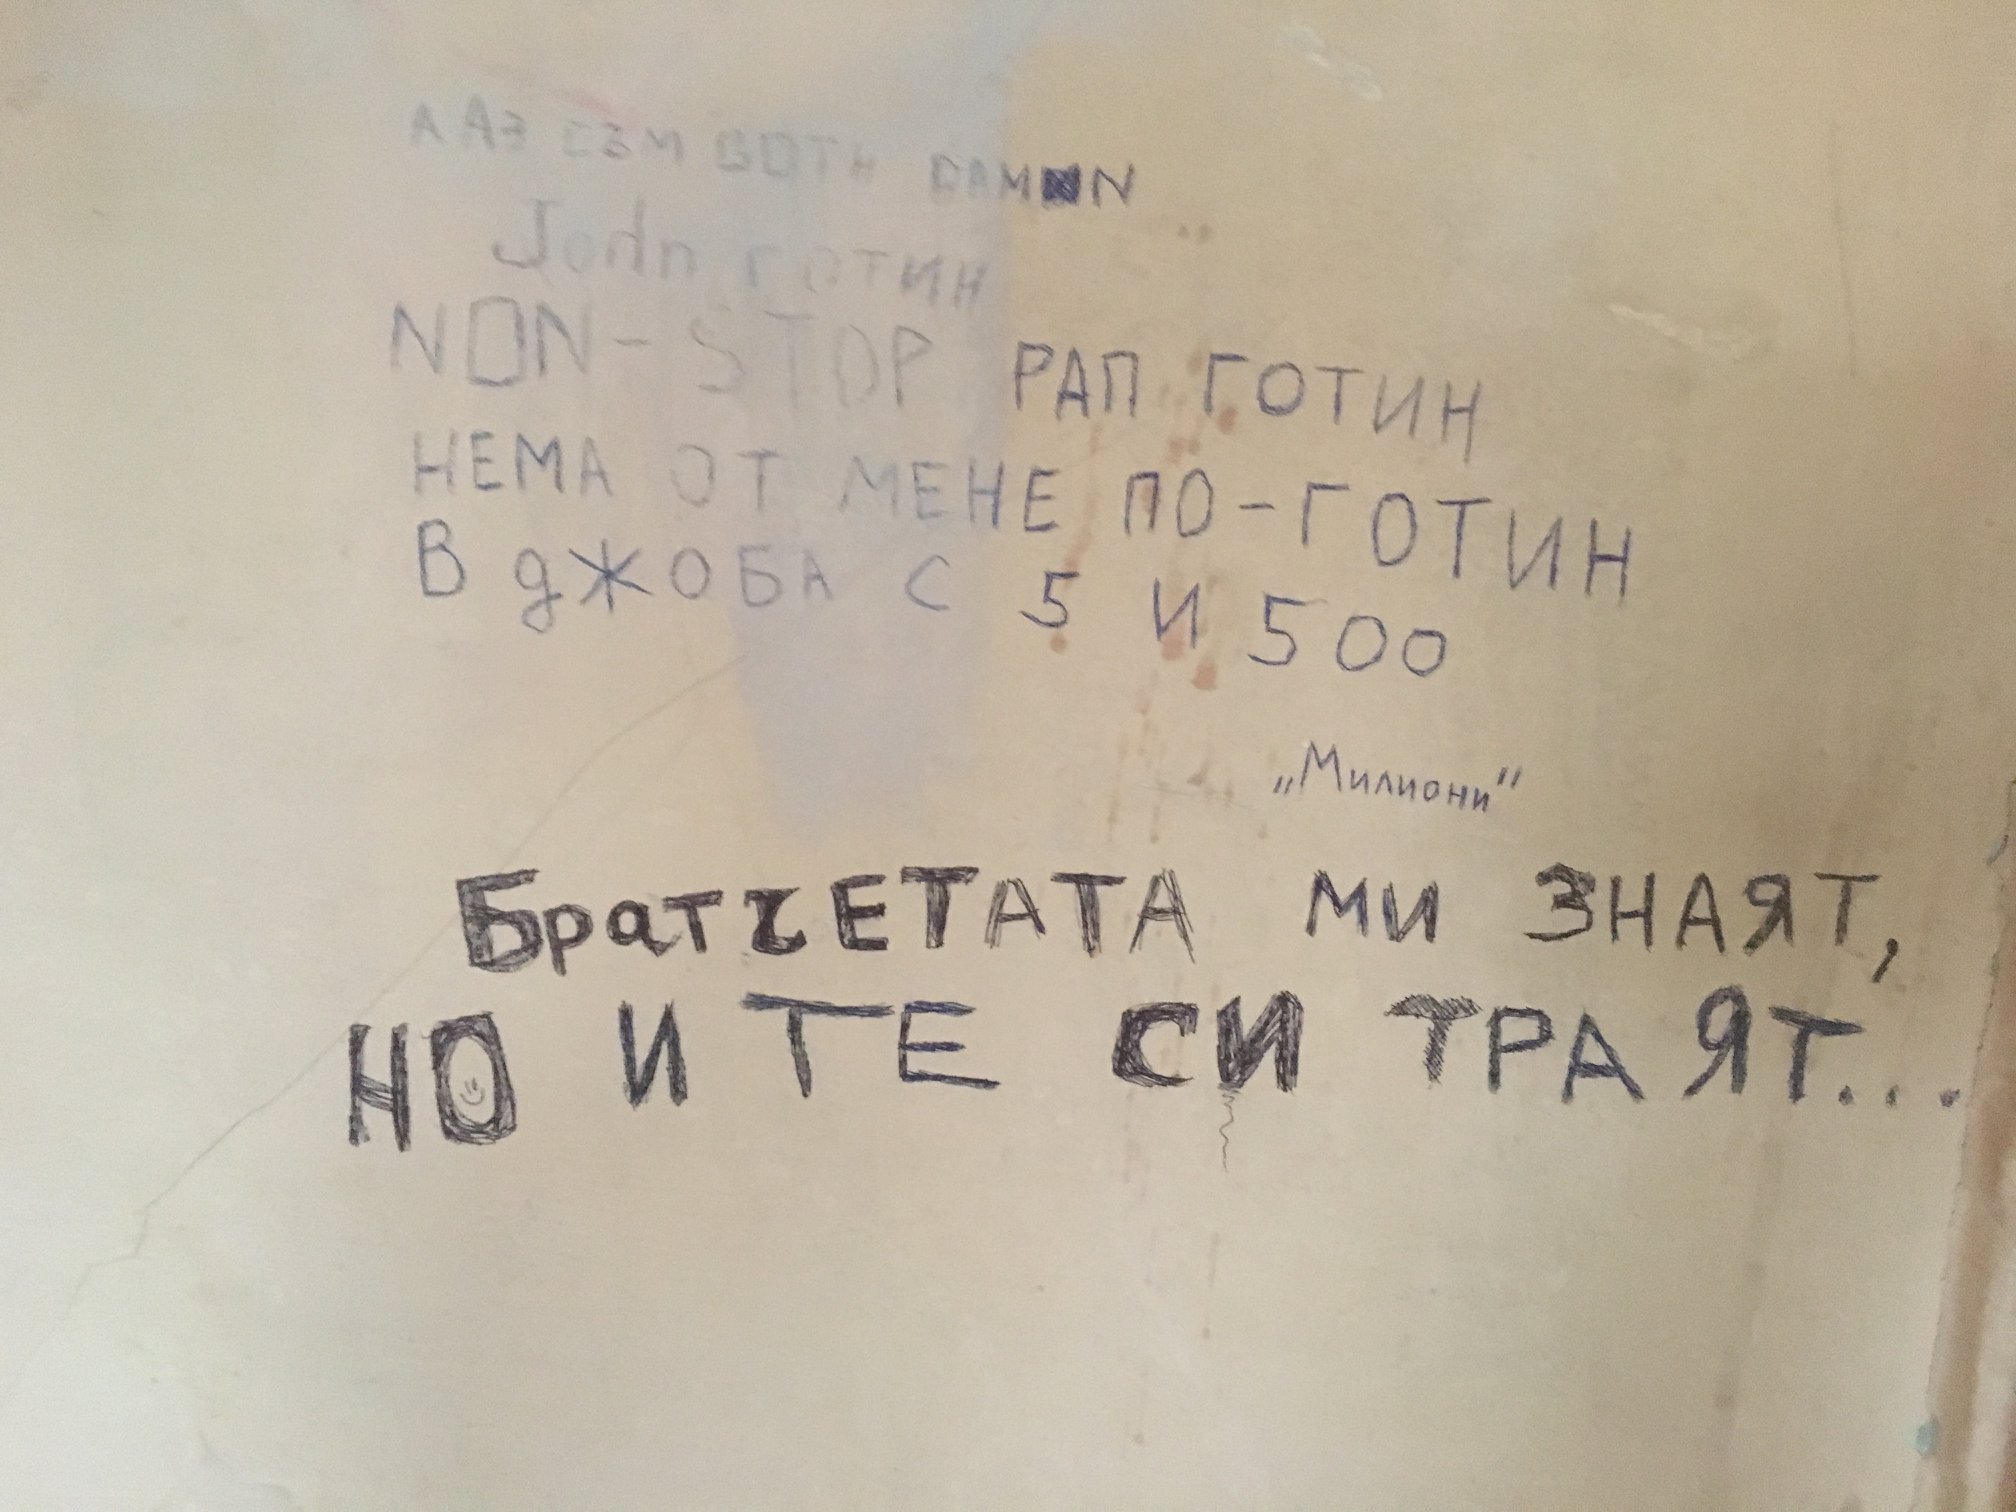 А АЗ СЪМ ВОТН DAMN
John ГОТИН
NON-STOP РАП ГОТИН
НЕМА ОТ МЕНЕ ПО-ГОТИН
В джОБА С 5 И 500
„Милиони“
БратчЕТАТА МИ ЗНАЯТ,
НО И ТЕ СИ ТРАЯТ...